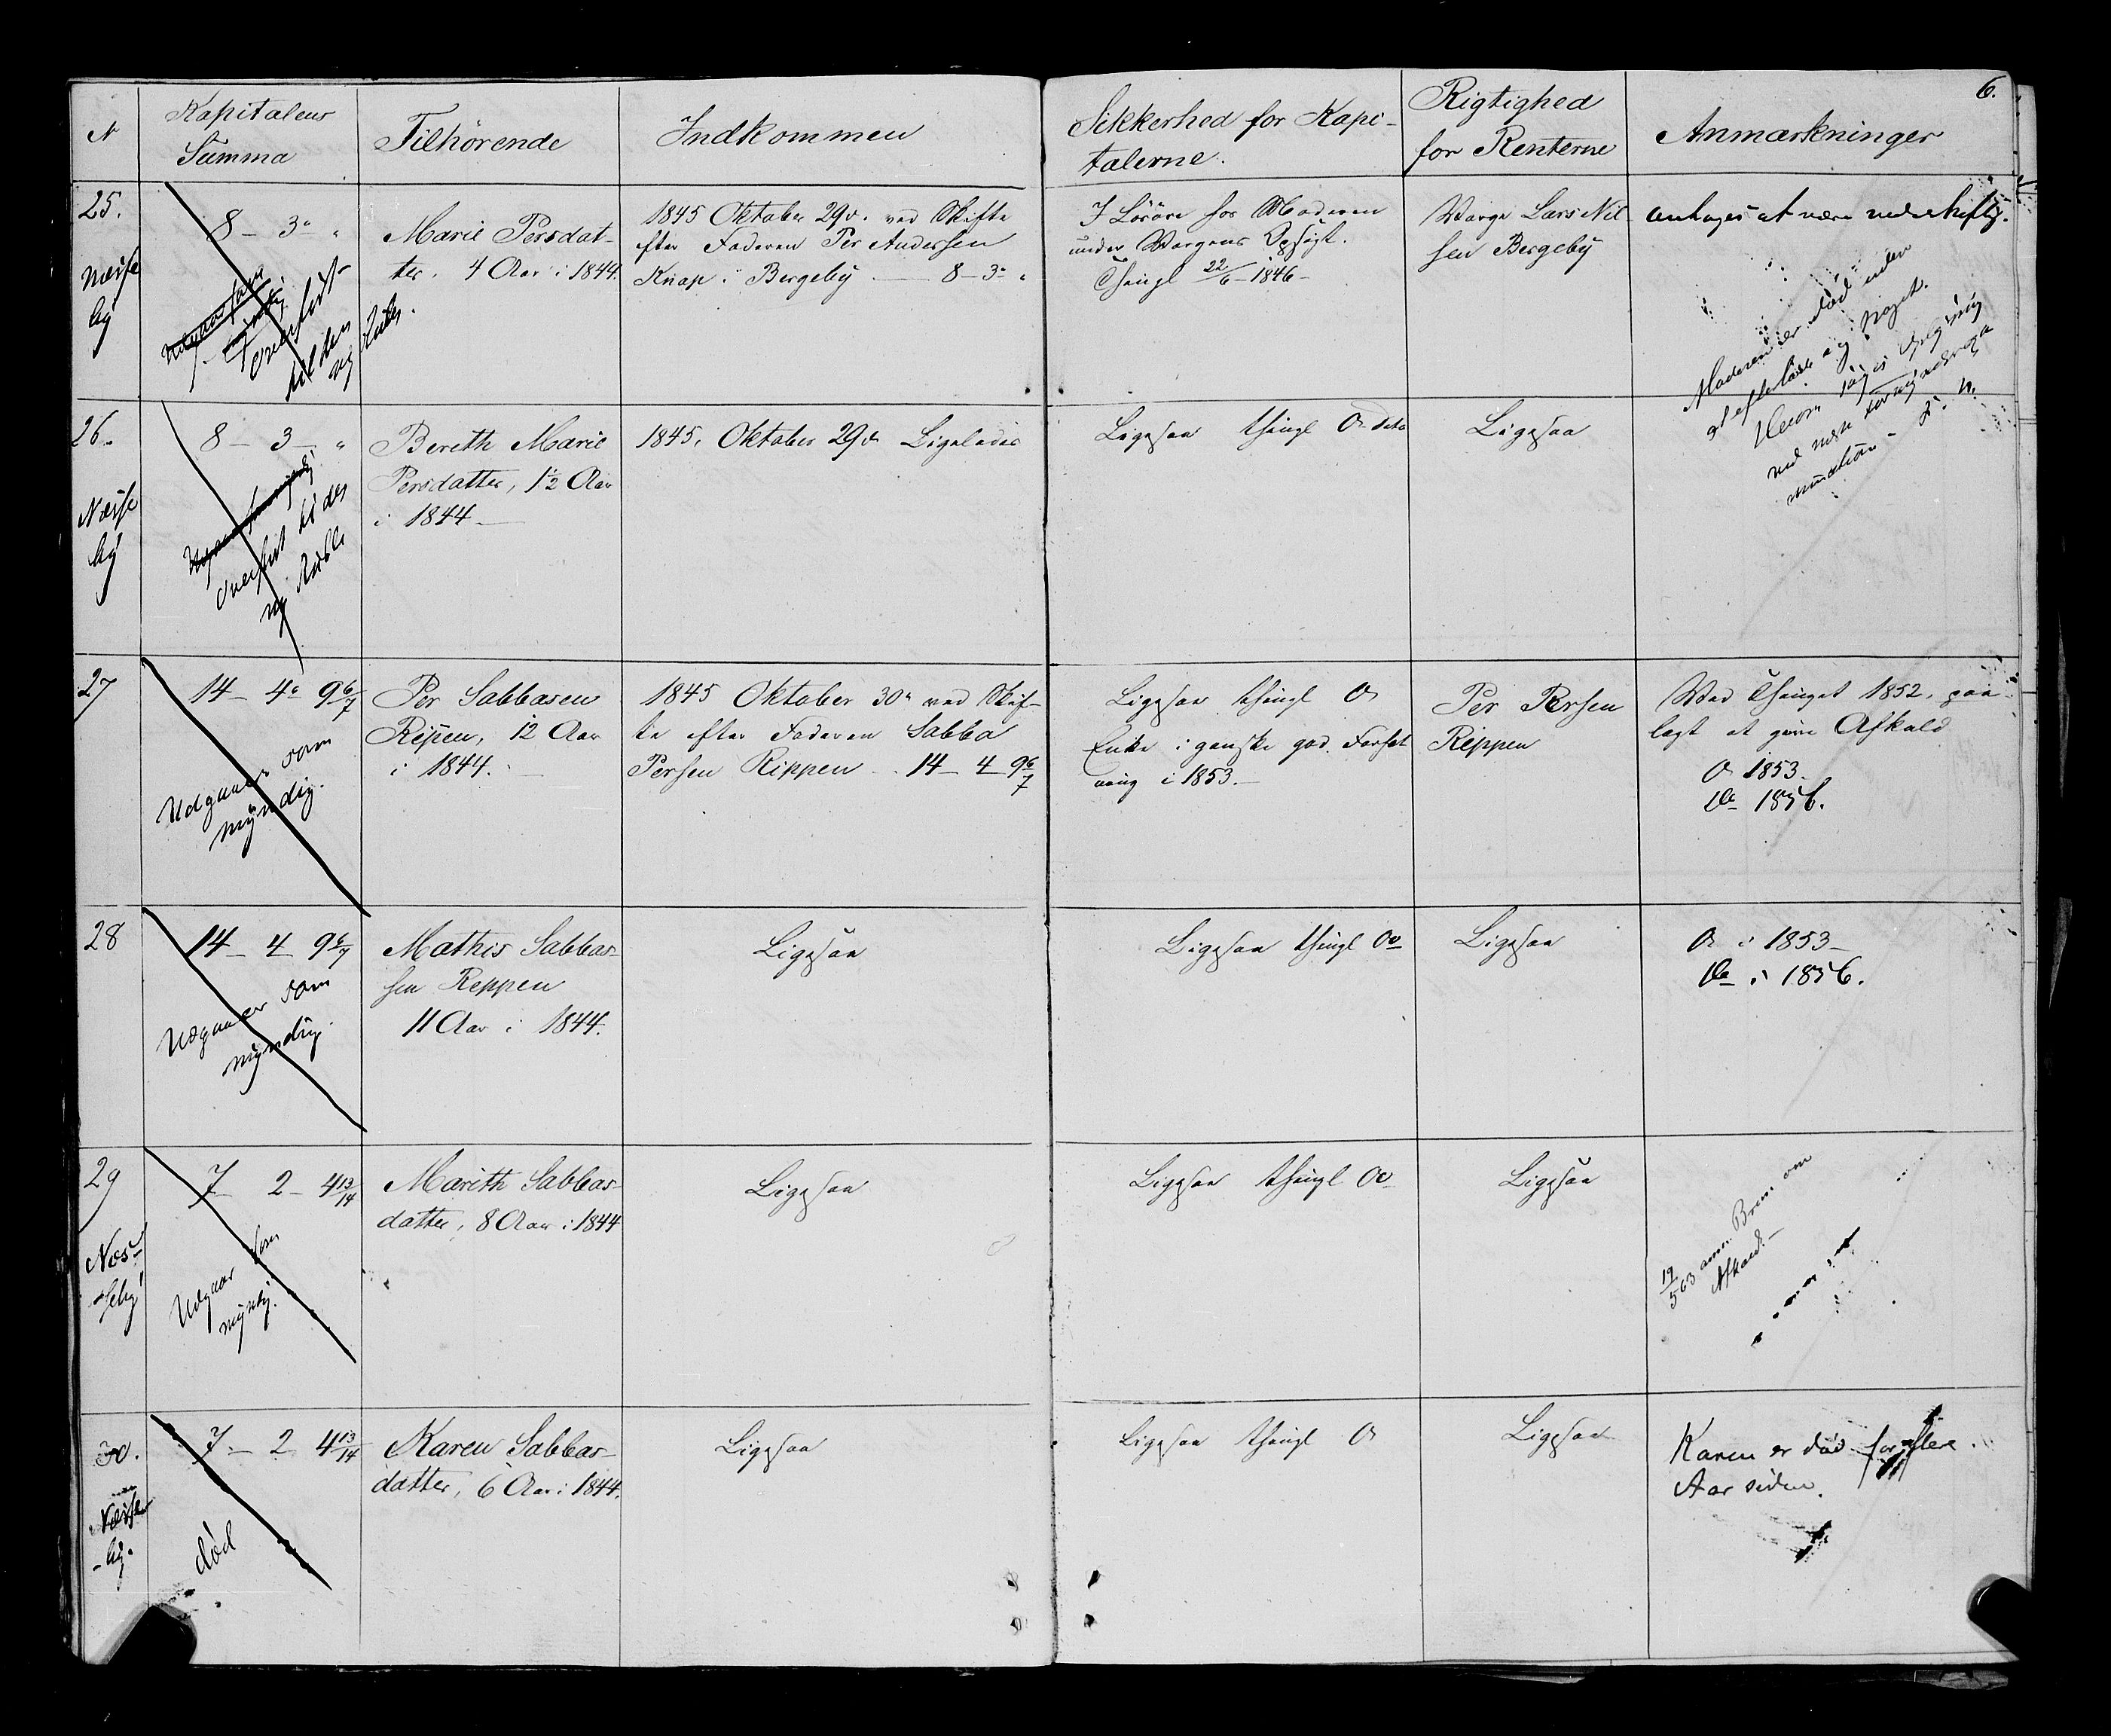 6.
N
Kapitalens
Summa
Tilhörende
Indkommen
Sikkerhed for Kapi-
talerne.
Rigtighed
for Renterne
Anmærkninger
25.
Næsse
by
8 - 3 "
Overført
Marie Persdat-
ter. 4 Aar i 1844.
1845 Oktober 29de ved Skifte
efter Faderen Per Andersen
Knap i Bergeby - 8 - 3 "
I Lösöre hos Moderen
under Vergens Opsigt.
Thingl 22/6 - 1846 -
Værge Lars Nil
sen Bergeby
antages at være vederheftig.
Moderen er död uden
at efterlade sig Noget.
26.
Næsse
by
8 - 3 - "
Bereth Marie
Persdatter, 1½ Aar
i 1844 -
1845, Oktober 29de Ligeledes
Ligesaa thingl
Ligesaa
27
14 - 4 9 6/7
Udgaaer som
myndig.
Per Sabbasen
Reppen, 12 Aar
i 1844.
1845 Oktober 30 ved Skif-
te efter Faderen Sabba
Persen Rippen - 14 - 4 9 6/7
Ligesaa thingl
Enke i ganske god Forfat
ning i 1853 -
Per Persen
Reppen
Ved Thinget 1852, paa-
lagt at give Afkald
1853.
Do 1856.
28
14 - 4 9 6/7
Udgaaer som
myndig.
Mathis Sabbas-
sen Reppen
11 Aar i 1844.
Ligesaa
Ligesaa thingl Do
Ligesaa
i 1853 -
Do i 1856.
29
Næs-
seby
7 - 2 - 4 13/14
Udgaar som
myndig.
Marith Sabbas-
datter, 8 Aar i 1844
Ligesaa
Ligesaa thingl Do
Ligesaa
19/5 63 Brev om
Afkald. -
30.
Næsse
-by.
7 - 2 4 13/14
död
Karen Sabbas-
datter, 6 Aar i 1844.
Ligesaa
Ligesaa thingl
Ligesaa
Karen er död for flere
Aar siden.